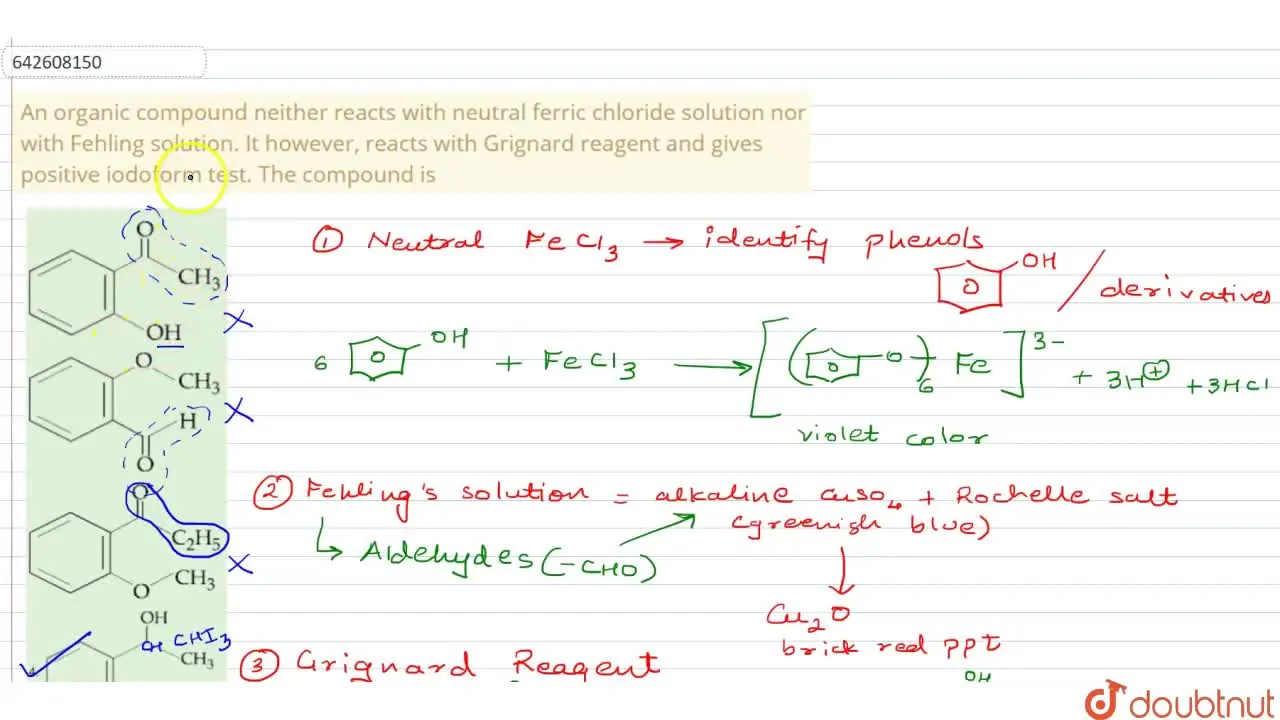 642608150
An organic compound neither reacts with neutral ferric chloride solution nor
with Fehling solution. It however, reacts with Grignard reagent and gives
positive iodoform test. The compound is
O
CH3
OH
X
O
CH3
H
X
O
O
C2H5
X
CH3
O
OH
CH CHI3
CH3
① Neutral FeCl3 → identify phenols
OH
/ derivatives
6 OH + FeCl3 → [( O)6 Fe]3- + 3H⊕ + 3HCl
violet color
② Fehling's solution = alkaline CuSO4 + Rochelle salt
(greenish blue)
↳ Aldehydes (-CHO)
Cu2O
brick red ppt
③ Grignard Reagent
OH
doubtnut